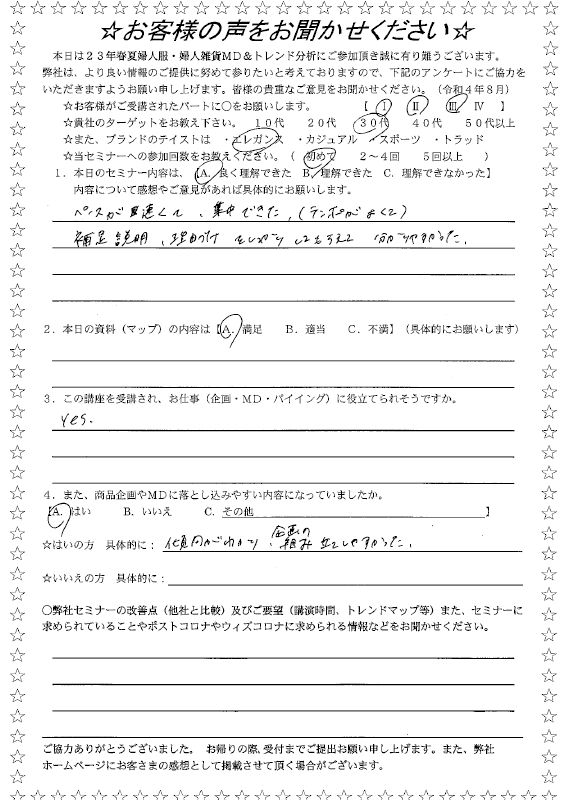 ☆お客様の声をお聞かせください☆
本日は２３年春夏婦人服・婦人雑貨ＭＤ＆トレンド分析にご参加頂き誠に有り難うございます。
弊社は、より良い情報のご提供に努めて参りたいと考えておりますので、下記のアンケートにご協力を
いただきますようお願い申し上げます。皆様の貴重なご意見をお聞かせください。（令和４年８月）
☆お客様がご受講されたパートに○をお願いします。 【 Ⅰ Ⅱ Ⅲ Ⅳ 】
☆貴社のターゲットをお教え下さい。 １０代 ２０代 ３０代 ４０代 ５０代以上
☆また、ブランドのテイストは ・エレガンス ・カジュアル ・スポーツ ・トラッド
☆当セミナーへの参加回数をお教えください。（ 初めて ２～４回 ５回以上 ）
１．本日のセミナー内容は、【A. 良く理解できた B. 理解できた C. 理解できなかった】
内容について感想やご意見があれば具体的にお願いします。
ペースが早速くて、集中できた。(テンポがよくて)
補足説明、理由付
２．本日の資料（マップ）の内容は【A. 満足 B. 適当 C. 不満】（具体的にお願いします）
３．この講座を受講され、お仕事（企画・ＭＤ・バイイング）に役立てられそうですか。
Yes.
４．また、商品企画やＭＤに落とし込みやすい内容になっていましたか。
【A. はい B. いいえ C. その他 】
☆はいの方 具体的に： 傾向がわかり、企画の組み立てしやすそうだ。
☆いいえの方 具体的に：
○弊社セミナーの改善点（他社と比較）及びご要望（講演時間、トレンドマップ等）また、セミナーに
求められていることやポストコロナやウィズコロナに求められる情報などをお聞かせください。
ご協力ありがとうございました。 お帰りの際、受付までご提出お願い申し上げます。また、弊社
ホームページにお客さまの感想として掲載させて頂く場合がございます。